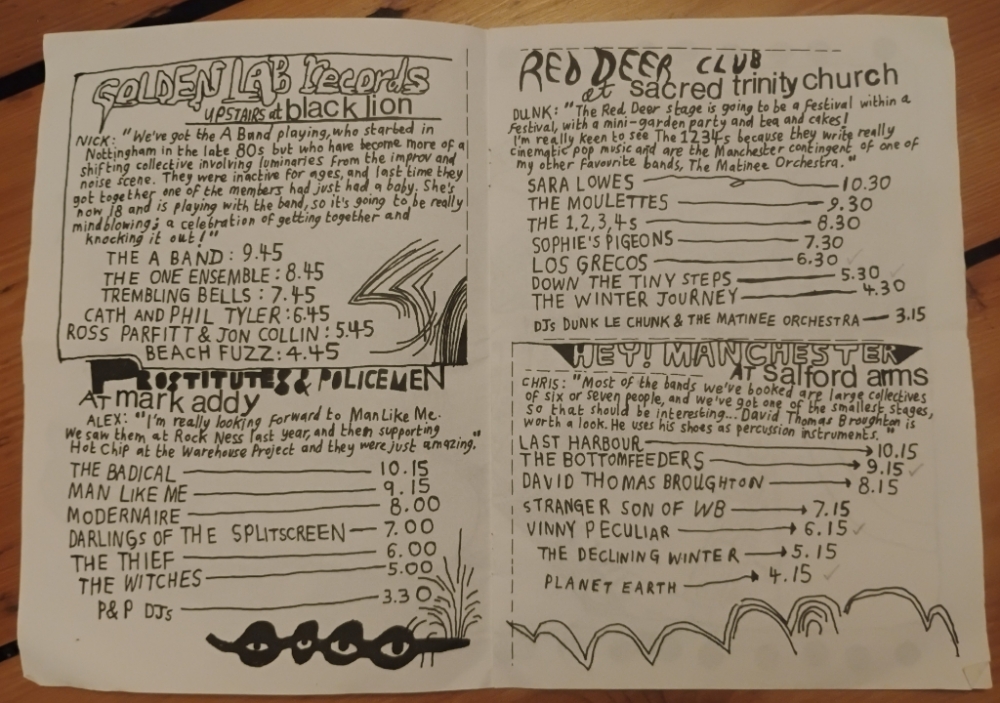 GOLDEN LAB Records
UPSTAIRS at black lion
NICK: "We've got the A Band playing, who started in
Nottingham in the late 80s but who have become more of a
shifting collective involving luminaries from the improv and
noise scene. They were inactive for ages, and last time they
got together one of the members had just had a baby. She's
now 18 and is playing with the band, so it's going to be really
mindblowing; a celebration of getting together and
knocking it out!"
THE A BAND: 9.45
THE ONE ENSEMBLE: 8.45
TREMBLING BELLS: 7.45
CATH AND PHIL TYLER: 6.45
ROSS PARFITT & JON COLLIN: 5.45
BEACH FUZZ: 4.45
PROSTITUTES & POLICEMEN
AT mark addy
ALEX: "I'm really looking forward to Man Like Me.
We saw them at Rock Ness last year, and then supporting
Hot Chip at the Warehouse Project and they were just amazing."
THE BADICAL 10.15
MAN LIKE ME 9.15
MODERNAIRE 8.00
DARLINGS OF THE SPLITSCREEN 7.00
THE THIEF 6.00
THE WITCHES 5.00
P&P DJs 3.30
RED DEER CLUB
at sacred trinity church
DUNK: "The Red Deer stage is going to be a festival within a
festival, with a mini-garden party and tea and cakes!
I'm really keen to see The 1234s because they write really
cinematic pop music and are the Manchester contingent of one of
my other favourite bands, The Matinee Orchestra."
SARA LOWES 10.30
THE MOULETTES 9.30
THE 1,2,3,4s 8.30
SOPHIE'S PIGEONS 7.30
LOS GRECOS 6.30
DOWN THE TINY STEPS 5.30
THE WINTER JOURNEY 4.30
DJs DUNK LE CHUNK & THE MATINEE ORCHESTRA 3.15
HEY! MANCHESTER
AT Salford arms
CHRIS: "Most of the bands we've booked are large collectives
of six or seven people, and we've got one of the smallest stages,
so that should be interesting... David Thomas Broughton is
worth a look. He uses his shoes as percussion instruments."
LAST HARBOUR 10.15
THE BOTTOMFEEDERS 9.15
DAVID THOMAS BROUGHTON 8.15
STRANGER SON OF WB 7.15
VINNY PECULIAR 6.15
THE DECLINING WINTER 5.15
PLANET EARTH 4.15